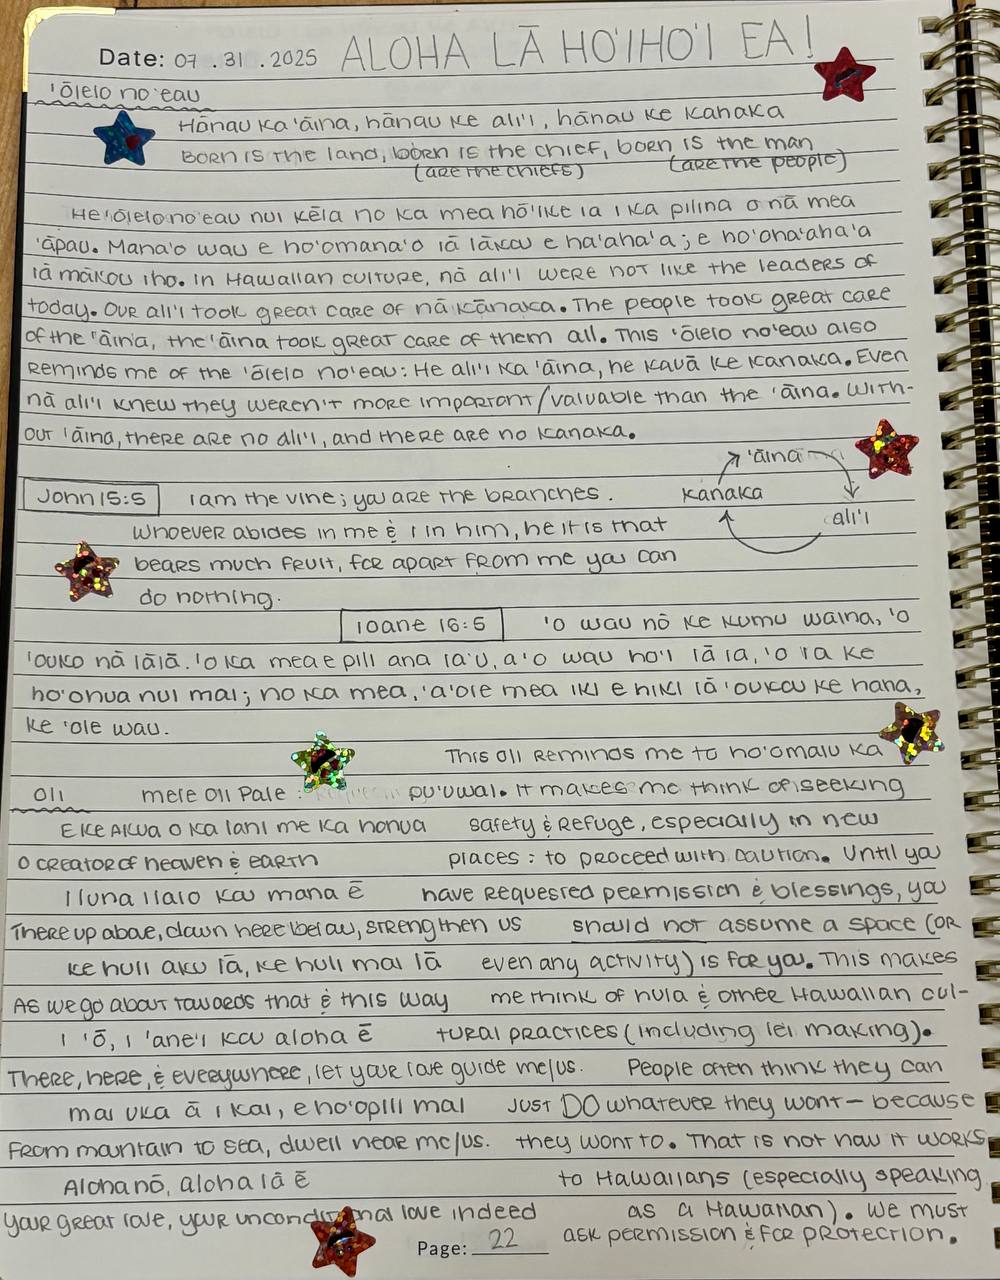 Date: 07 . 31 . 2025 ALOHA LĀ HO'IHO'I EA!
'ōlelo no'eau
Hānau ka 'āina, hānau ke ali'i, hānau ke kanaka
Born is the land, born is the chief, born is the man
(are the chiefs) (are the people)
He 'ōlelo no'eau nui kēia no ka mea hō'ike ia i ka pilina o nā mea
'āpau. Mana'o wau e ho'omana'o iā lākou e ha'aha'a; e ho'oha'aha'a
iā mākou iho. In Hawaiian culture, nā ali'i were not like the leaders of
today. Our ali'i took great care of nā kānaka. The people took great care
of the 'āina, the 'āina took great care of them all. This 'ōlelo no'eau also
reminds me of the 'ōlelo no'eau: He ali'i ka 'āina, he kauā ke kanaka. Even
nā ali'i knew they weren't more important/valuable than the 'āina. With-
out 'āina, there are no ali'i, and there are no kanaka.
'āina
kanaka
ali'i
John 15:5 I am the vine; you are the branches.
Whoever abides in me & I in him, he it is that
bears much fruit, for apart from me you can
do nothing.
Ioane 16:5 'O wau nō ke kumu waina, 'o
'oukou nā lālā. 'O ka mea e pili ana ia'u, a 'o wau ho'i iā ia, 'o ia ke
ho'onua nui mai; no ka mea, 'a'ole mea iki e hiki iā 'oukou ke hana,
ke 'ole wau.
oli mele oli Pale :
E ke Akua o ka lani me ka honua
O creator of heaven & earth
I luna i lalo kou mana ē
There up above, down here below, strengthen us
Ke huli aku lā, ke huli mai lā
As we go about towards that & this way
I 'ō, i 'ane'i kou aloha ē
There, here, & everywhere, let your love guide me/us.
Mai uka ā i kai, e ho'opili mai
From mountain to sea, dwell near me/us.
Aloha nō, aloha lā ē
Your great love, your unconditional love indeed
This oli reminds me to ho'omalu ka
pu'uwai. It makes me think of seeking
safety & refuge, especially in new
places: to proceed with caution. Until you
have requested permission & blessings, you
should not assume a space (or
even any activity) is for you. This makes
me think of hula & other Hawaiian cul-
tural practices (including lei making).
People often think they can
just DO whatever they want — because
they want to. That is not how it works
to Hawaiians (especially speaking
as a Hawaiian). We must
ask permission & for protection.
Page: 22